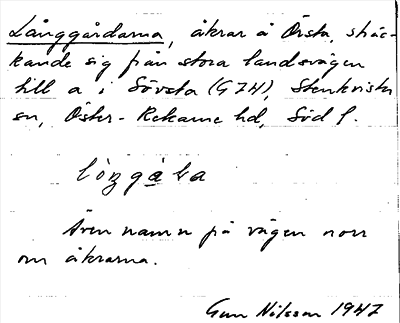 Långgårdarna, åkrar å Örsta, sträc-
kande sig från stora landsvägen
till a i Sövsta (GJH), Stenkvista
sn, Öster-Rekarne hd, Söd l.
Även namn på vägen norr
om åkrarna.
Gun Nilsson 1947